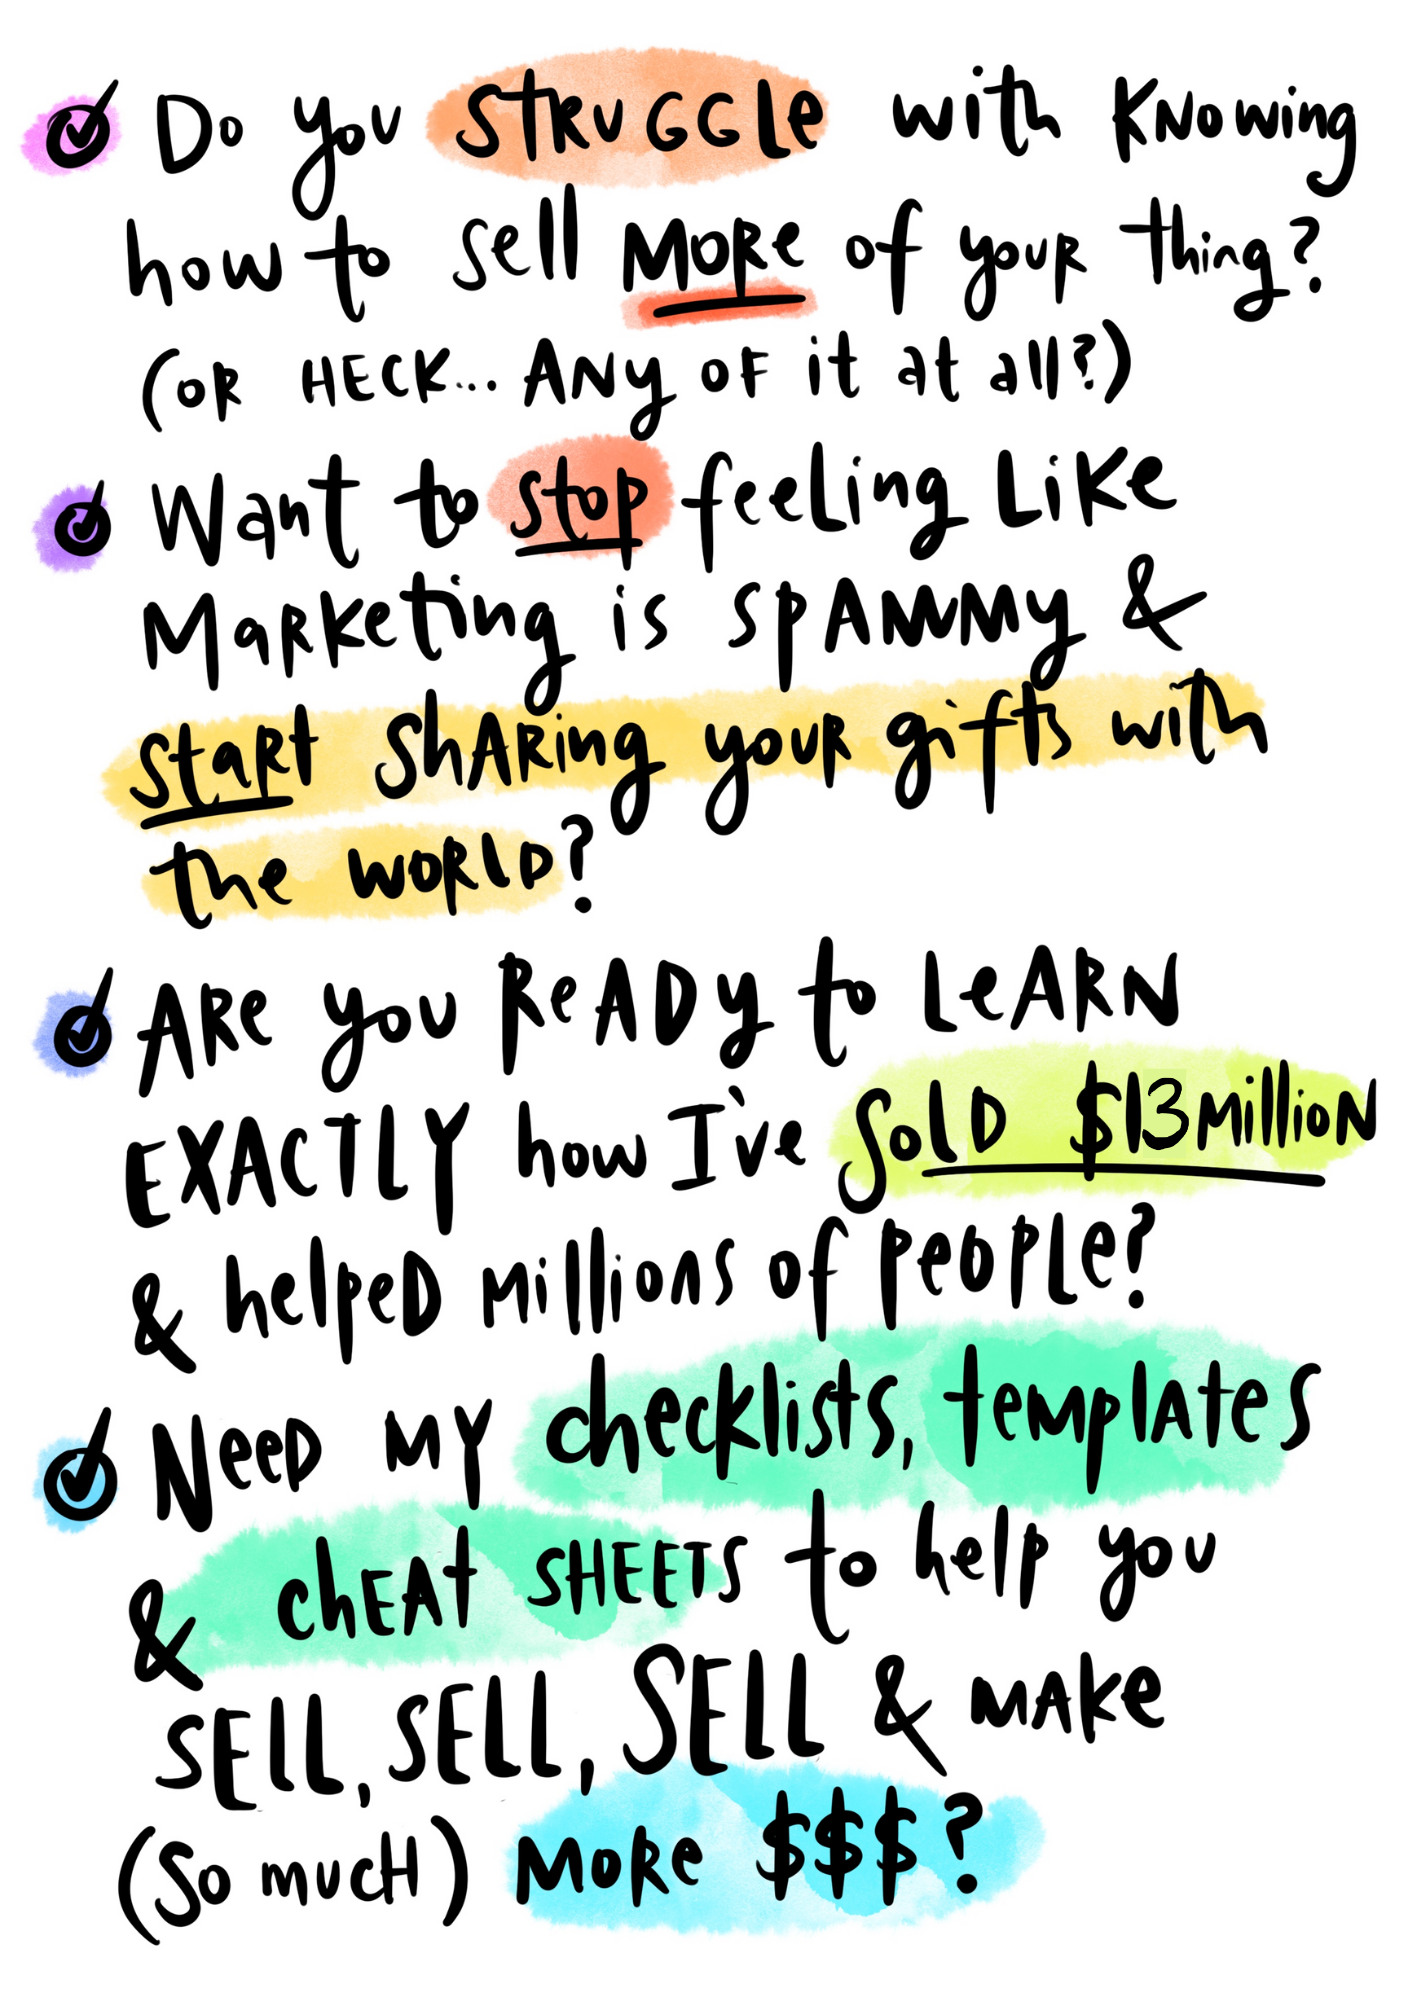 Do you STRUGGLE with KNowing
how to sell MORE of your thing?
(OR HECK... ANy OF it at all?)
Want to stop feeling Like
Marketing is SPAMMy &
start Sharing your gifts with
the WORLD?
ARe you ReADy to LeARN
EXACTLY how I've SOLD $13Million
& helped Millions of people?
NeeD My checklists, templates
& chEAt SHEETS to help you
SELL, SELL, SELL & MAKe
(So mucH) MoRe $$$?